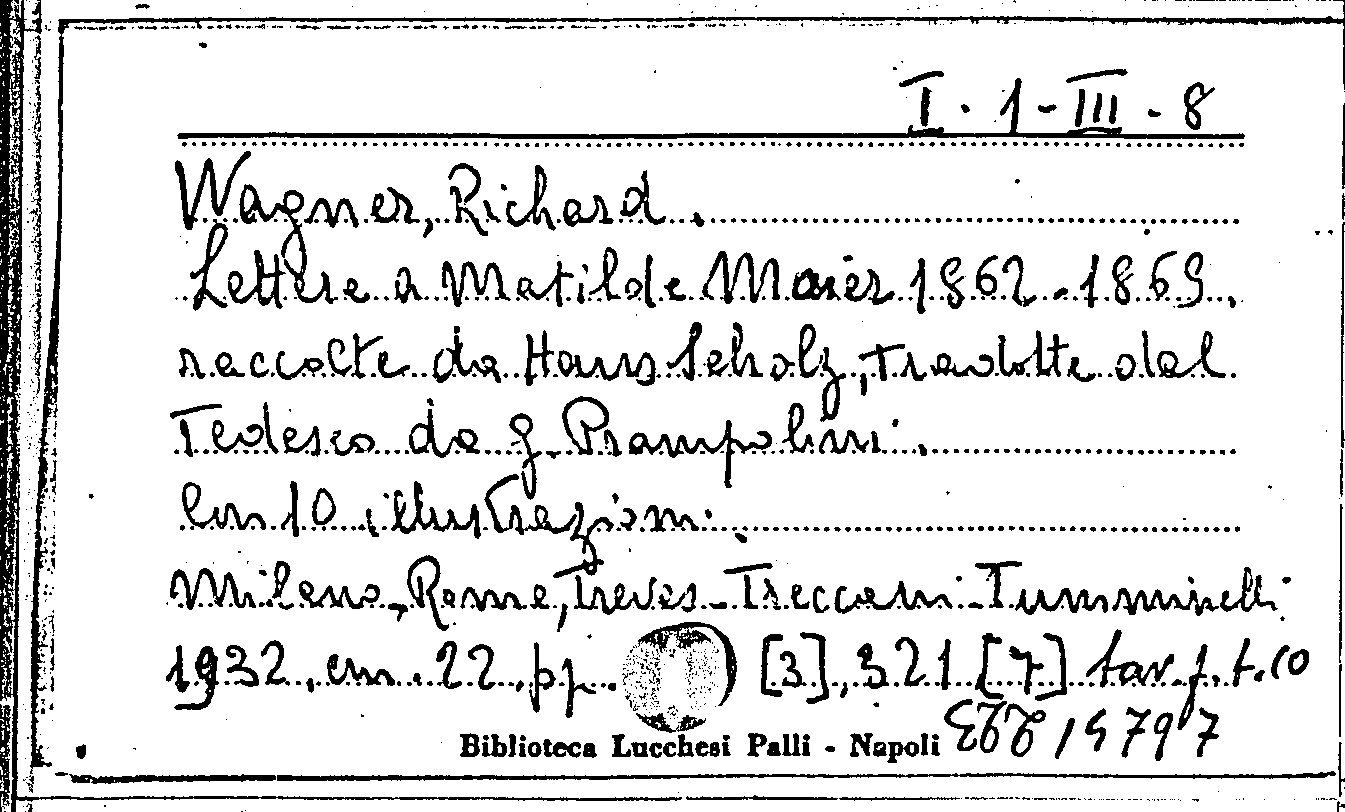 I. 1 - III - 8
Wagner, Richard.
Lettere a Matilde Maier 1862-1869.
raccolte da Hans Scholz, Tradotte dal
Tedesco da G. Prampolini.
Con 10 illustrazioni.
Milano-Roma, Treves-Treccani-Tumminelli
1932, cm. 22. pp. [3], 321 [7] tav. f. t. 10
Biblioteca Lucchesi Palli - Napoli